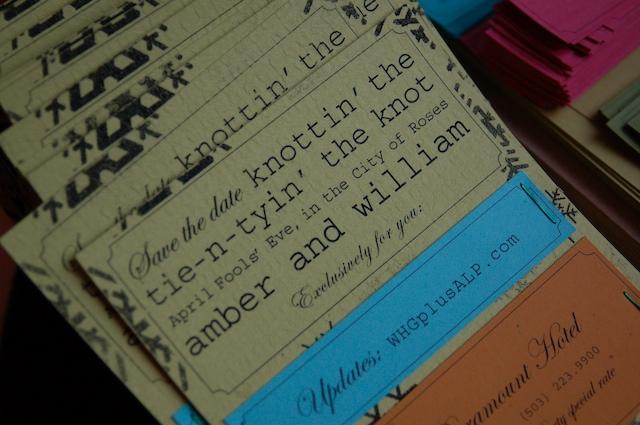 Save the date knottin' the
tie-n-tyin' the knot
April Fools' Eve, in the City of Roses
amber and william
Exclusively for you:
Updates: WHGplusALP.com
Hotel
(503) 223.9900
special rate
knottin' the